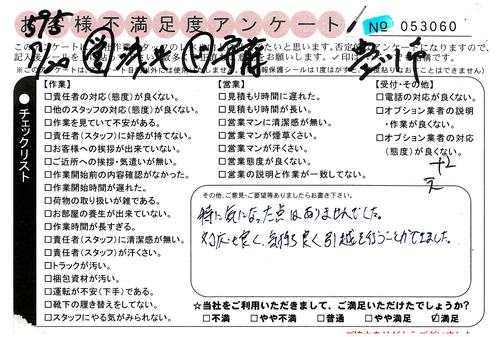 お客様不満足度アンケート
No 053060
チェックリスト
【作業】
□責任者の対応(態度)が良くない。
□他のスタッフの対応(態度)が良くない。
□作業を見ていて不安がある。
□責任者(スタッフ)に好感が持てない。
□お客様への挨拶が出来ていない。
□ご近所への挨拶・気遣いが無い。
□作業開始前の内容確認がなかった。
□作業開始時間が遅れた。
□荷物の取り扱いが雑である。
□お部屋の養生が出来ていない。
□作業時間が長すぎる。
□責任者(スタッフ)に清潔感が無い。
□責任者(スタッフ)が汗くさい。
□トラックが汚い。
□梱包資材が汚い。
□運転が不安(下手)である。
□靴下の履き替えをしてない。
□スタッフにやる気がみられない。
【営業】
□見積もり時間に遅れた。
□見積もり時間が長い。
□営業マンに清潔感が無い。
□営業マンが煙草くさい。
□営業マンが汗くさい。
□営業態度が良くない。
□営業の説明と作業が一致してない。
【受付・その他】
□電話の対応が良くない。
□オプション業者の説明
・作業が良くない。
□オプション業者の対応
(態度)が良くない。
その他、ご意見・ご要望等ありましたらお書き下さい。
特に気になった点はありませんでした。
対応も良く、気持ち良く引越を行うことができました。
☆当社をご利用いただきまして、ご満足いただけたでしょうか?
□不満 □やや不満 □普通 □やや満足 ☑満足